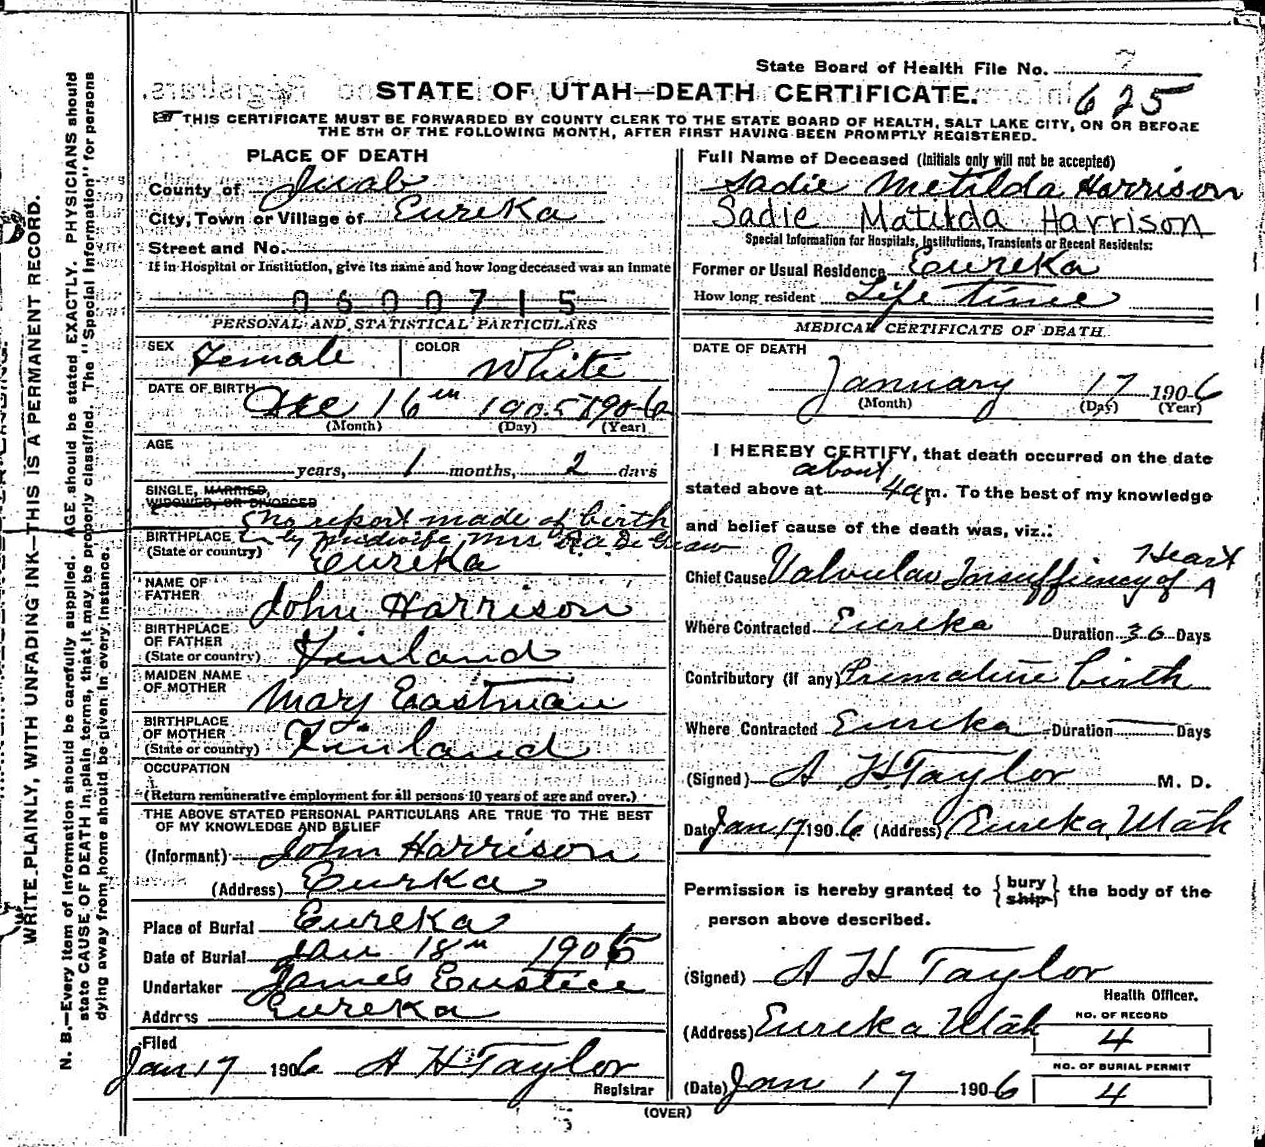 State Board of Health File No. 7
STATE OF UTAH—DEATH CERTIFICATE. 625
THIS CERTIFICATE MUST BE FORWARDED BY COUNTY CLERK TO THE STATE BOARD OF HEALTH, SALT LAKE CITY, ON OR BEFORE
THE 5TH OF THE FOLLOWING MONTH, AFTER FIRST HAVING BEEN PROMPTLY REGISTERED.
PLACE OF DEATH
County of Juab
City, Town or Village of Eureka
Street and No.
If in Hospital or Institution, give its name and how long deceased was an inmate
0600715
PERSONAL AND STATISTICAL PARTICULARS
SEX Female COLOR White
DATE OF BIRTH Dec 16th 1905 1906
(Month) (Day) (Year)
AGE
years, 1 months, 2 days
SINGLE, MARRIED,
WIDOWED, OR DIVORCED
no report made of birth
by midwife Mrs R.A. De Graw
BIRTHPLACE
(State or country) Eureka
NAME OF
FATHER John Harrison
BIRTHPLACE
OF FATHER
(State or country) Finland
MAIDEN NAME
OF MOTHER Mary Eastman
BIRTHPLACE
OF MOTHER
(State or country) Finland
OCCUPATION
(Return remunerative employment for all persons 10 years of age and over.)
THE ABOVE STATED PERSONAL PARTICULARS ARE TRUE TO THE BEST
OF MY KNOWLEDGE AND BELIEF
(Informant) John Harrison
(Address) Eurka
Place of Burial Eureka
Date of Burial Jan 18th 1906
Undertaker James Eustice
Address Eureka
Filed
Jan 17 1906 A H Taylor
Registrar
Full Name of Deceased (Initials only will not be accepted)
Sadie Metilda Harrison
Sadie Matilda Harrison
Special Information for Hospitals, Institutions, Transients or Recent Residents:
Former or Usual Residence Eureka
How long resident Life time
MEDICAL CERTIFICATE OF DEATH.
DATE OF DEATH
January 17 1906
(Month) (Day) (Year)
I HEREBY CERTIFY, that death occurred on the date
about
stated above at 4 a m. To the best of my knowledge
and belief cause of the death was, viz.:
Heart
Chief Cause Valvular Insuffiency of
Where Contracted Eureka Duration 30 Days
Contributory (if any) Premature birth
Where Contracted Eureka Duration Days
(Signed) A H Taylor M. D.
Date Jan 17 1906 (Address) Eureka, Utah
Permission is hereby granted to { bury ship } the body of the
person above described.
(Signed) A H Taylor
Health Officer.
(Address) Eureka Utah
NO. OF RECORD
4
NO. OF BURIAL PERMIT
4
(Date) Jan 17 1906
(OVER)
WRITE PLAINLY, WITH UNFADING INK—THIS IS A PERMANENT RECORD.
N. B.—Every item of information should be carefully supplied. AGE should be stated EXACTLY. PHYSICIANS should
state CAUSE OF DEATH in plain terms, that it may be properly classified. The "Special Information" for persons
dying away from home should be given in every instance.